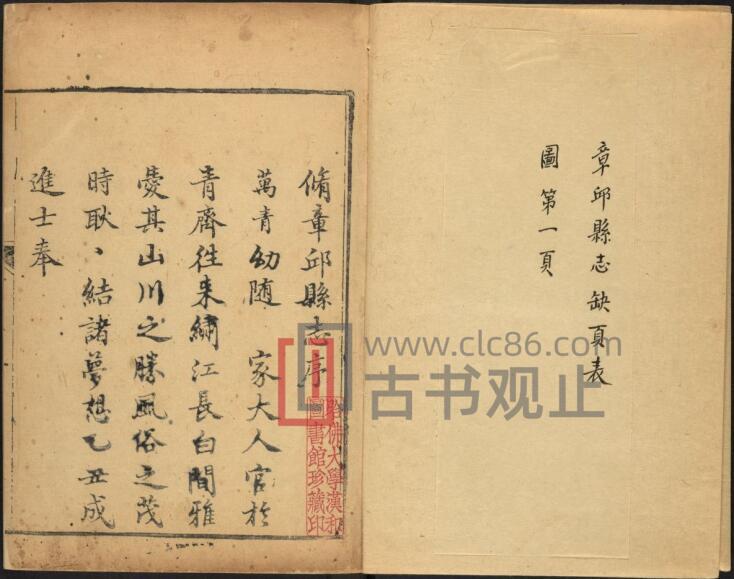 章邱縣志缺頁表
圖第一頁
脩章邱縣志序
萬青幼隨 家大人官於
青齊往来繡江長白間雅
愛其山川之勝風俗之茂
時耿、結諸夢想乙丑成
進士奉
哈佛大學漢和
圖書館珍藏印
www.clc86.com
古书观止